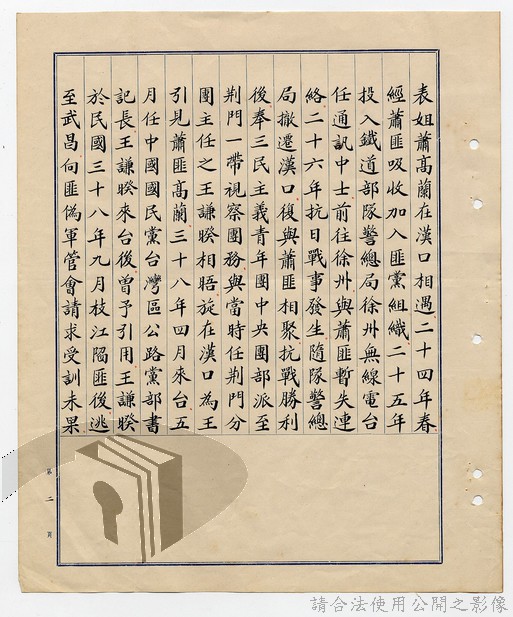 表姐蕭高蘭在漢口相遇二十四年春
經蕭匪吸收加入匪黨組織二十五年
投入鐵道部隊警總局徐州無線電台
任通訊中士前往徐州與蕭匪暫失連
絡二十六年抗日戰事發生隨隊警總
局撤遷漢口復與蕭匪相聚抗戰勝利
後奉三民主義青年團中央團部派至
荆門一帶視察團務與當時任荆門分
團主任之王謙暌相晤旋在漢口為王
引見蕭匪高蘭三十八年四月來台五
月任中國國民黨台灣區公路黨部書
記長王謙暌來台後曾予引用王謙暌
於民國三十八年九月枝江陷匪後逃
至武昌向匪偽軍管會請求受訓未果
第二頁
請合法使用公開之影像